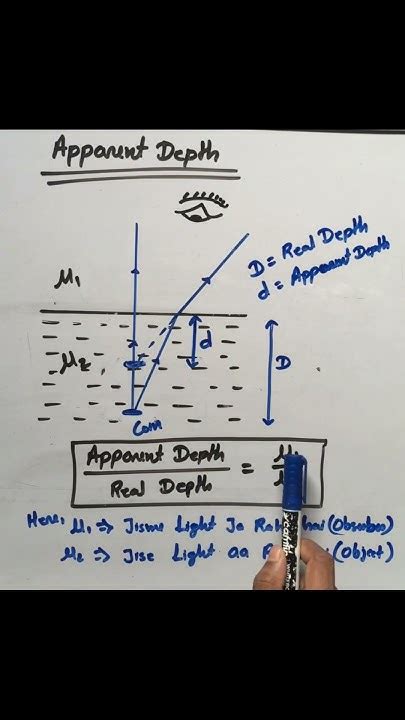 Apparent Depth
D = Real Depth
d = Apparent Depth
μ₁
μ₂
d
D
Coin
Apparent Depth
Real Depth
= μ₁
Here, μ₁ => Jisme Light Ja (Observer)
μ₂ => Jise Light aa (Object)